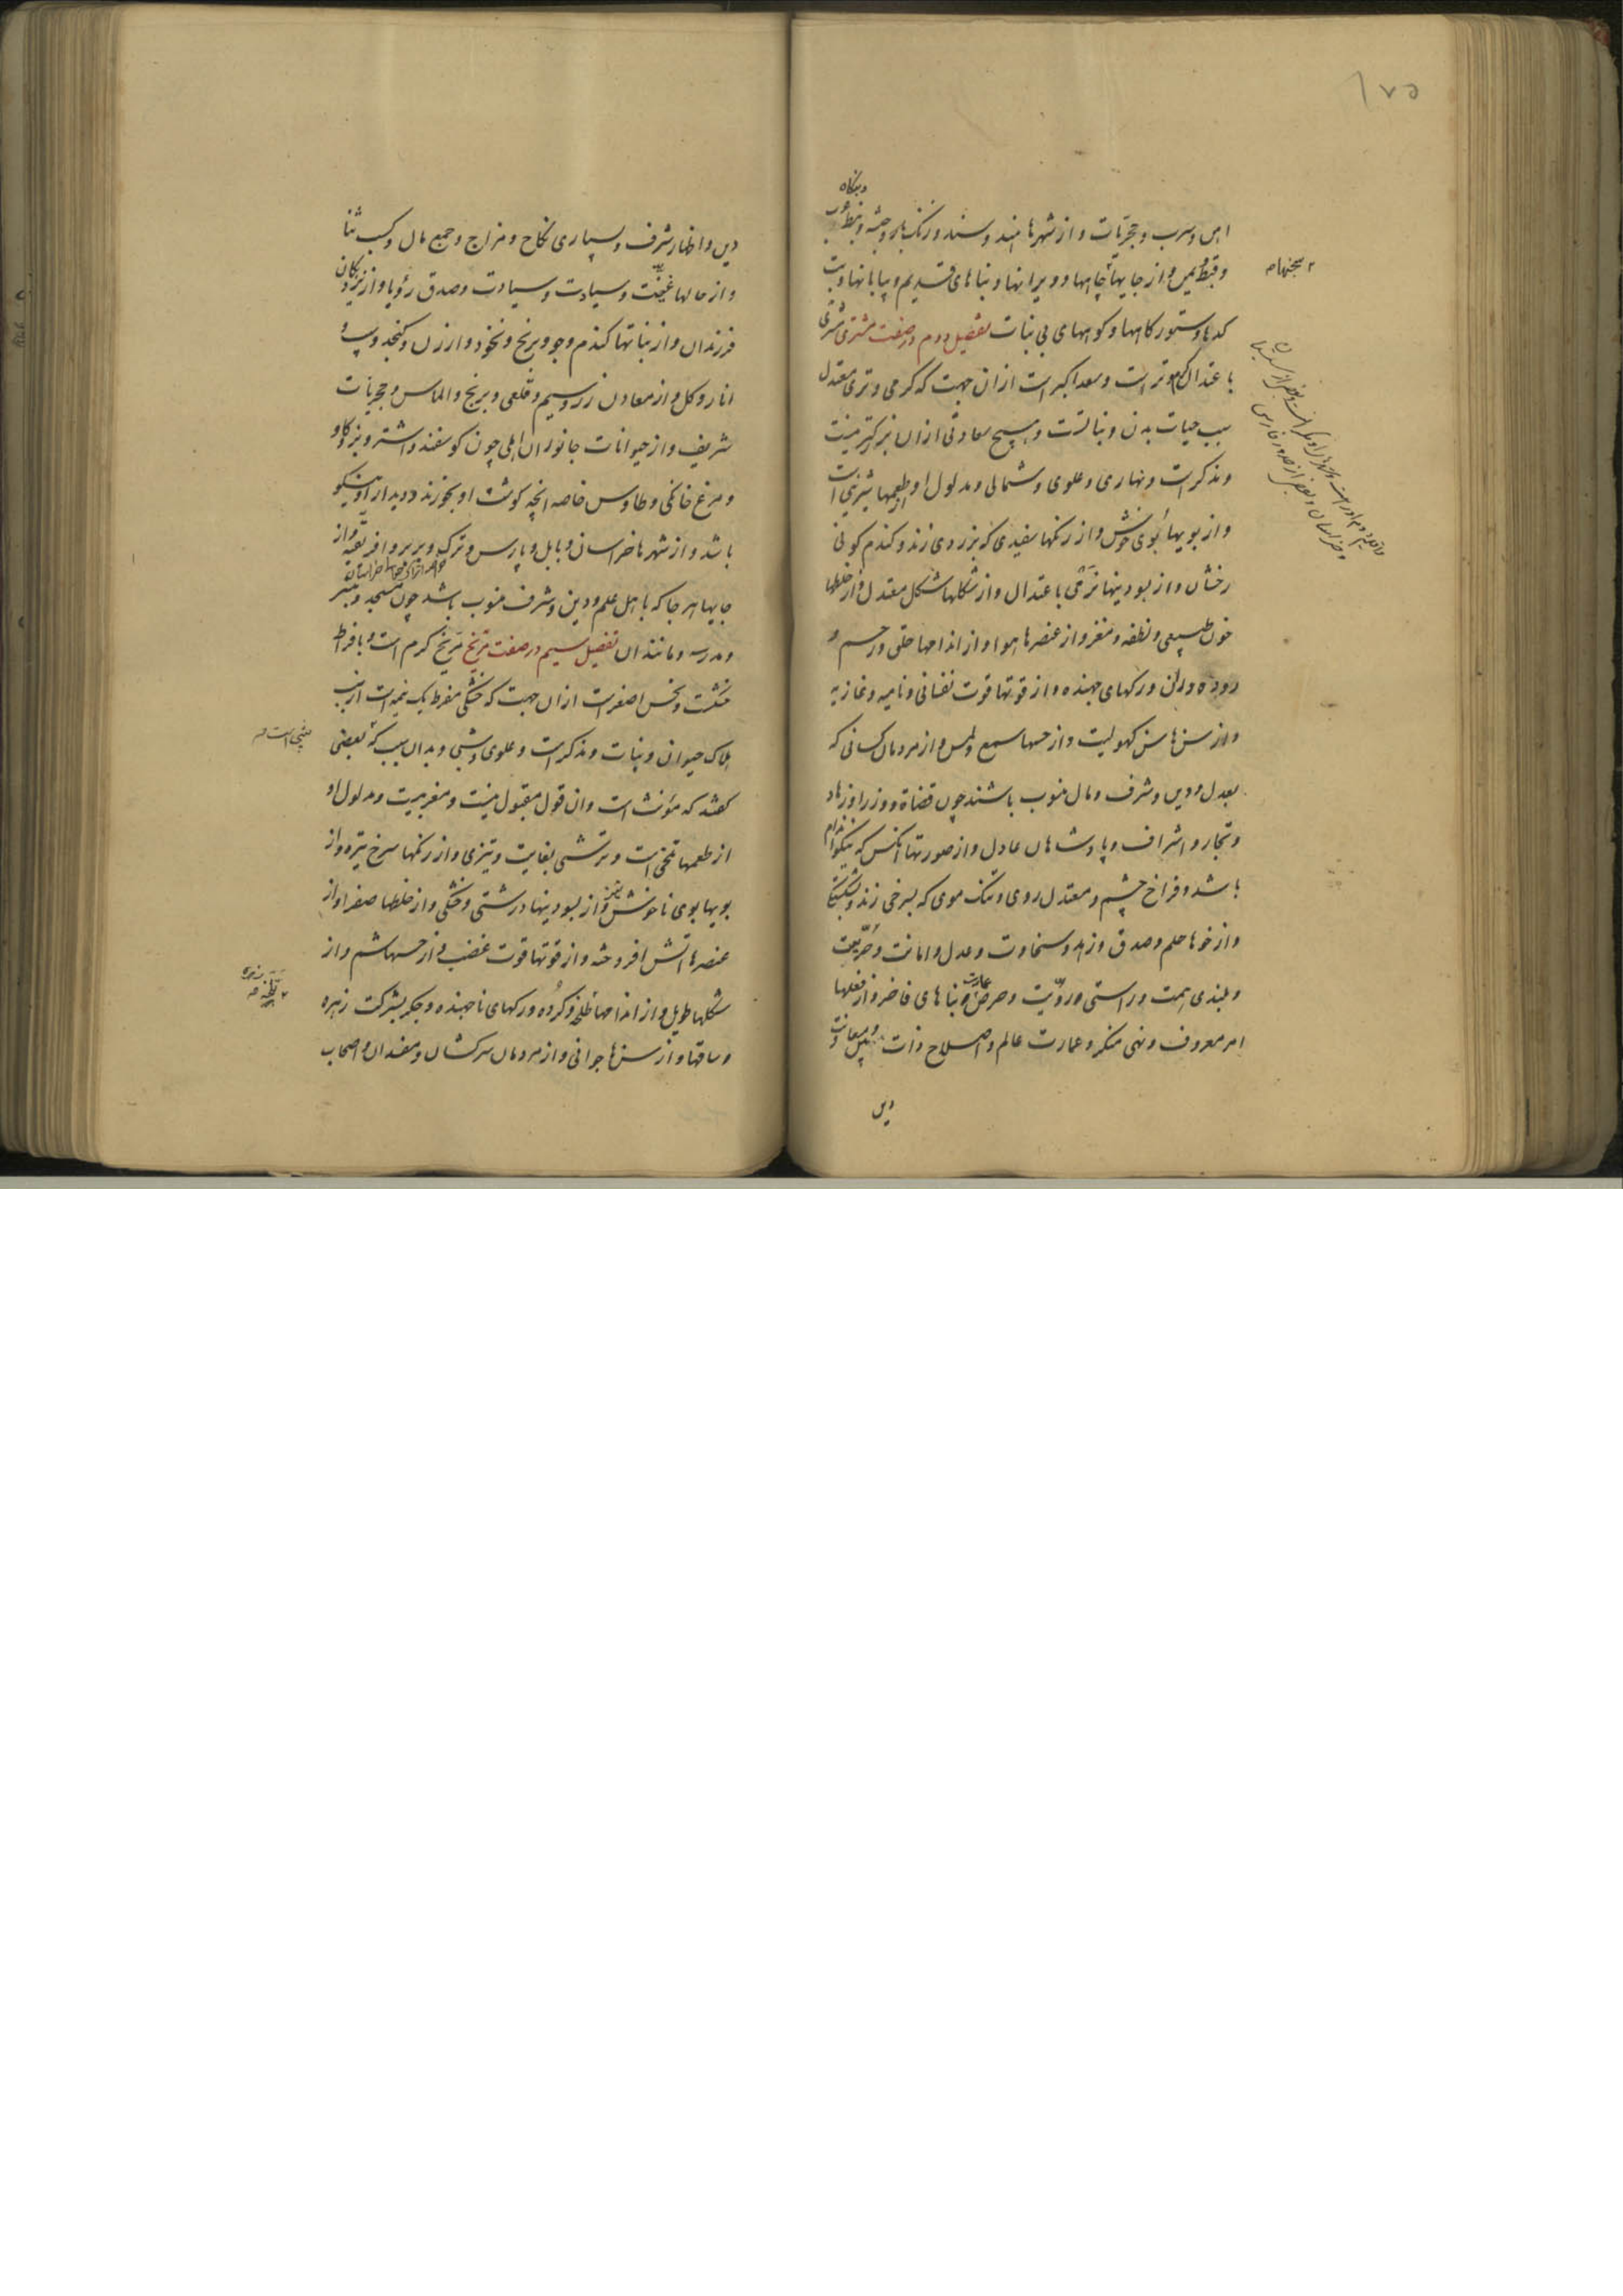 ۱۷۵
اهن و سرب و حجریات و از شهرها هند و سند و زنگبار و حبشه و نبط
و قبط و یمن و از جایها چاهها و ویرانها و بناهای قدیم و بیابانها و بت
کدها و ستورگاهها و کوههای بی نبات تفصیل دوم در صفت مشتری مشتری
باعتدال گرم و تر است و سعد اکبر است از ان جهت که گرمی و تری معتدل
سبب حیات بدن و نباتست و هیچ سعادتی از ان بزرگتر نیست
و مذکر است و نهاری و علوی و شمالی و مدلول او از طعمها شیرینی است
و از بویها بوی خوش و از رنگها سفیدی که بزردی زند و گندم گونی
رخشان و از بسودنیها نرمی باعتدال و از شکلها شکل معتدل و از خلطها
خون طبیعی و نطفه و مغز و از عنصرها هوا و از اندامها حلق و رحم و
روده و ران و رگهای جهنده و از قوتها قوت نفسانی و نامیه و غاذیه
و از سنها سن کهولیت و از حسها سمع و لمس و از مردمان کسانی که
بعدل و دین و شرف و مال منسوب باشند چون قضاة و وزرا و زهاد
و تجار و اشراف و پادشاهان عادل و از صورتها انکس که نیکو اندام
باشد و فراخ چشم و معتدل روی و تنک موی که بسرخی زند و
و از خوها حلم و صدق و زهد و سخاوت و عدل و امانت و حریت
و بلندی همت و راستی و رویت و حرص عمارت و بناهای فاخر و از فعلها
امر معروف و نهی منکر و عمارت عالم و اصلاح ذات
دین
دین و اظهار شرف و بسیاری نکاح و مزاح و جمع مال و کسب ثنا
و از حالها و سیادت و سیادت و صدق رؤیا و از نزدیکان
فرزندان و از نباتها گندم و جو و برنج و نخود و ارزن و کنجد و
انار و گل و از معادن زر و سیم و قلعی و برنج و الماس و حجریات
شریف و از حیوانات جانوران اهلی چون گوسفند و اشتر و بز و گاو
و مرغ خانگی و طاوس خاصه انچه گوشت او بخورند و دیدار او نیکو
باشد و از شهرها خراسان و بابل و پارس و ترک و بربر و افریقیه و از
جایها هر جا که باهل علم و دین و شرف منسوب باشد چون مسجد و منبر
و مدرسه و مانند ان تفصیل سیم در صفت مریخ مریخ گرم است و بافراط
خشکست و نحس اصغر است از ان جهت که خشکی مفرط یک نیمه است از سبب
هلاک حیوان و نبات و مذکر است و علوی و شبی و بدان سبب که بعضی
گفتند که مؤنث است و ان قول مقبول نیست و مغربیست و مدلول او
از طعمها تلخی است و ترشی بغایت و تیزی و از رنگها سرخ تیره و از
بویها بوی ناخوش و از بسودنیها درشتی و خشکی و از خلطها صفرا و از
عنصرها اتش افروخته و از قوتها قوت غضب و از حسها شم و از
شکلها طویل و از اندامها و گرده و رگهای ناجهنده و جگر بشرکت زهره
و ساقها و از سنها جوانی و از مردمان سرکشان و مفسدان و اصحاب